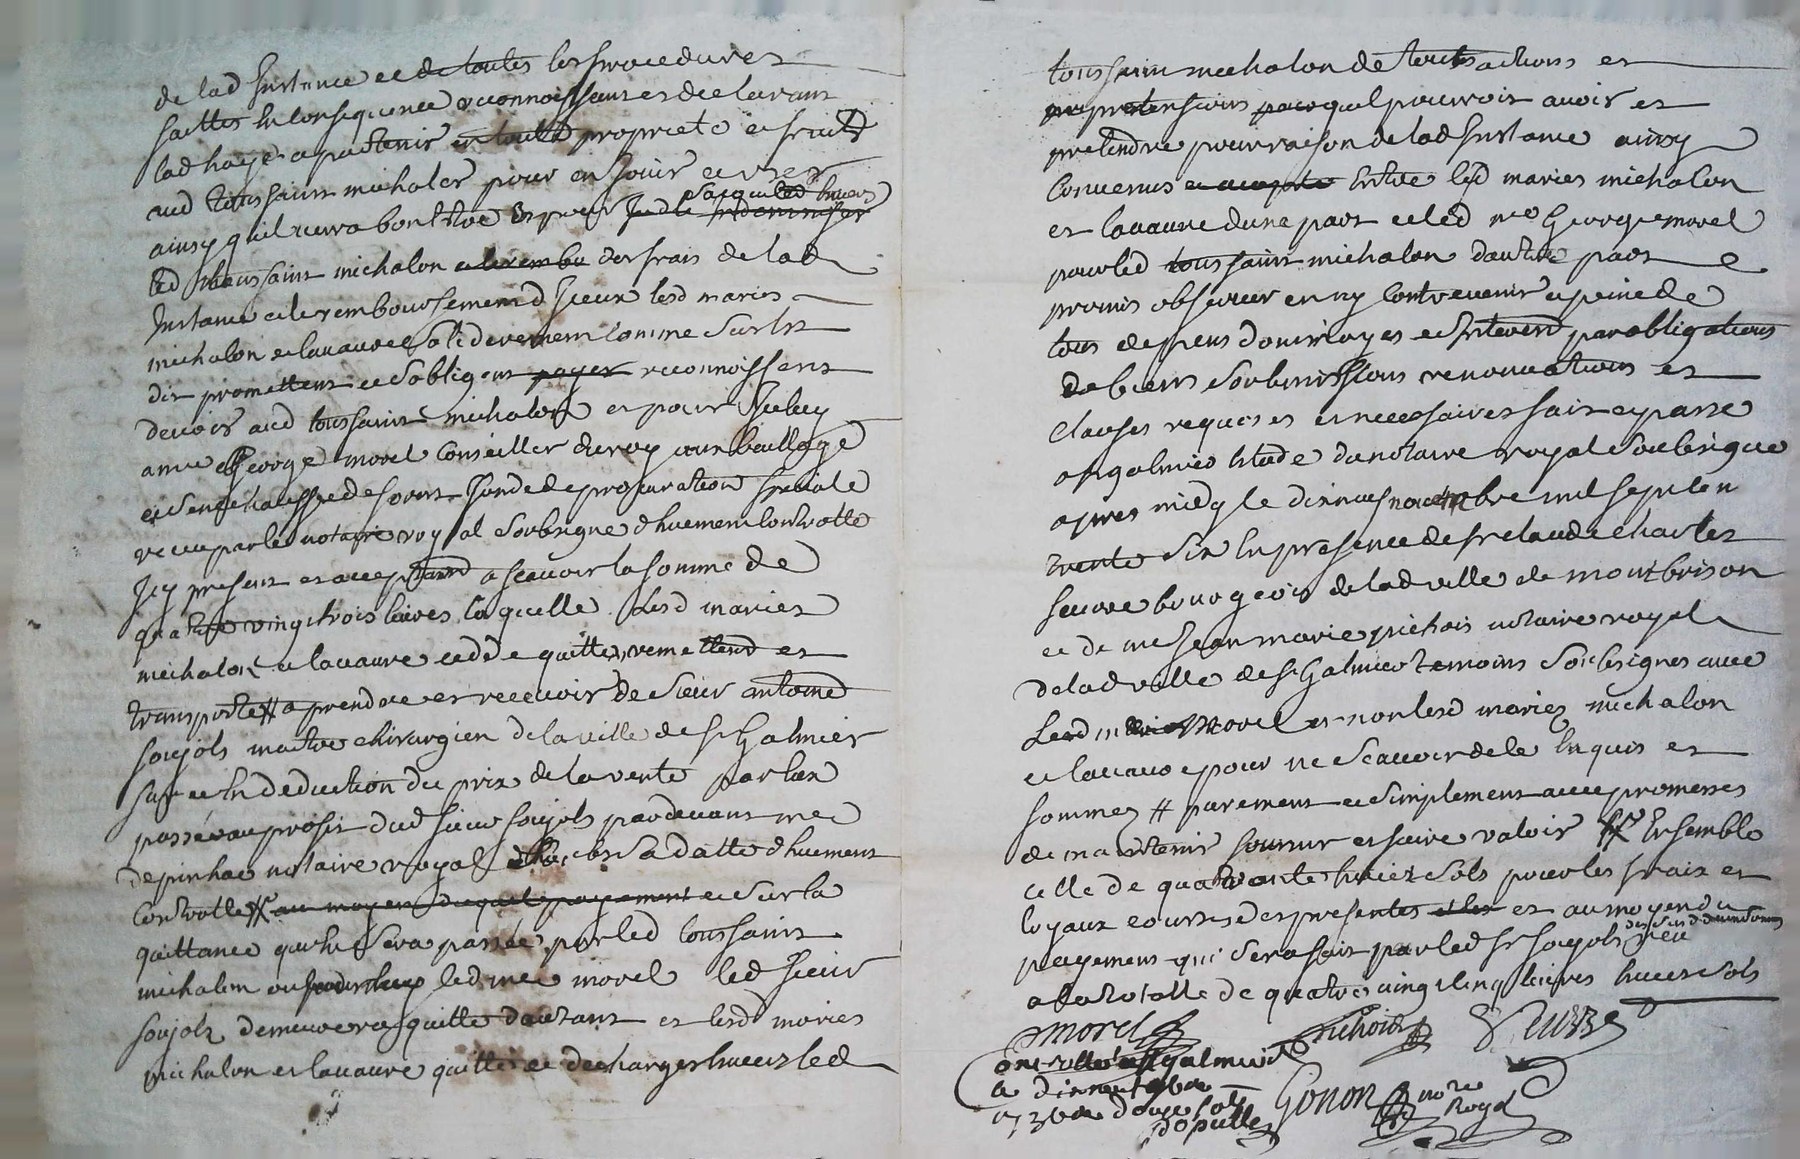 de lad Instance et de toutes les procedures
faittes En Consequence reconnoissant et declarant
lad haye apartenir en toute propriete et fruits
aud toussaint michalon pour en Jouir et user
ainsy quil verra bon Estre Et pour
led thoussaint michalon des frais de lad
Instance et le remboursement d Iceux lesd maries
michalon et lavaure solidairement Comme sus Est
dit promettent et sobligent payer reconnoissent
devoir aud toussaint michalon et pour Iceluy
a me George morel Conseiller du roy aux bailliage
et senechaussee de forest fonde de procuration speciale
receue par le notaire royal soubsigne d huement Controlle
Icy present et acceptant a scavoir la somme de
quatre vingt trois livres laquelle Lesd maries
michalon et lavaure cedde quitte remettend et
transporte # a prendre et recevoir de sieur antoine
soujols maitre chirurgien de la ville de St Galmier
sur et En deduction du prix de la vente par luy
passé au profit dud sieur soujols pardevant me
depinhac notaire royal sa datte d huement
Controlle au moyen duquel payement et sur la
quittance qui En sera passée par led toussaint
michalon ou led me morel led sieur
soujols demeurera quitte d autant et lesd maries
michalon et lavaure quitte et decharges envers led
toussaint michalon de toutes actions et
pretensions quel pourroit avoir et
pretendre pour raison de lad Instance ainsy
Convenus Entre lesd maries michalon
et lavaure dune part et led me George morel
pour led toussaint michalon dautre part
promis observer en ny Contrevenir a peine de
tous depens domages et Interest par obligations
de biens soubmissions renonciations et
Clauses requises et necessaires fait et passe
a st galmier Etude du notaire royal soubsigne
apres midy le dixneuf novembre mil sept cen
trente six En presence de sr claude Charles
bourgeois de lad ville de montbrison
et de me Jean marie pichois notaire royal
de lad ville de St Galmier temoins soubsignes avec
Led me morel et non lesd maries michalon
et lavaure pour ne scavoir de le Enquis et
sommes # purement et simplement avec promesses
de maintenir fournir et faire valoir # Ensemble
celle de quarante huict sols pour les frais et
loyaux courts des presentes et au moyen du
payement qui sera fait par led sr soujols
a la totalle de quatre vingt cinq livres huict sols
morel pichois
Controlle a St galmier
a dixneuf 9bre
1736 douze sols
Gonon nore
Royal